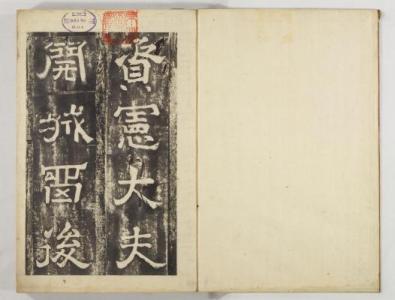 資憲大夫
開城留後